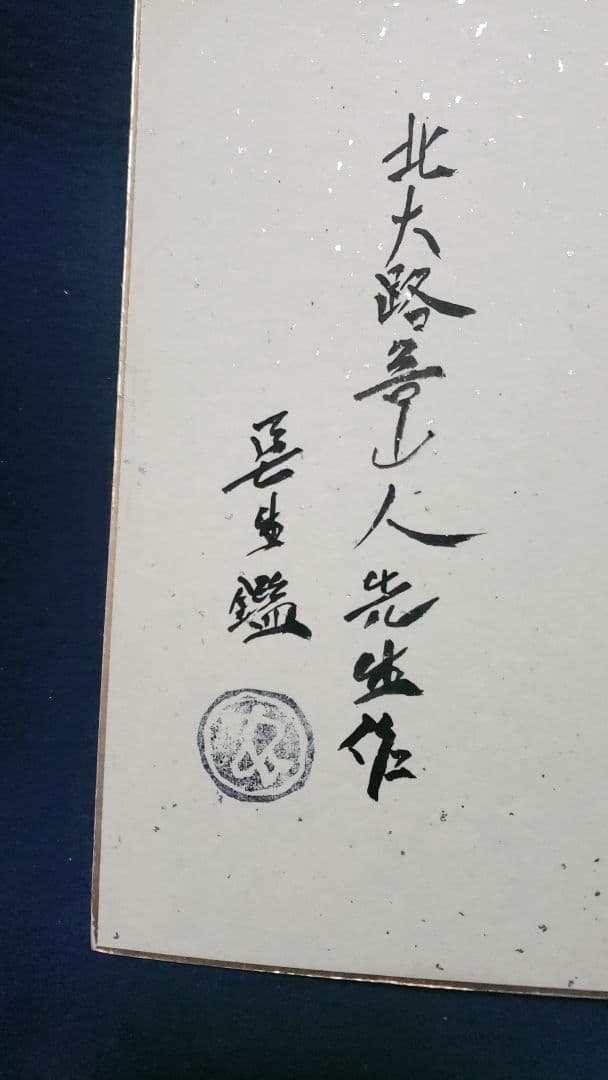 北大路魯山人先生作
生鑑